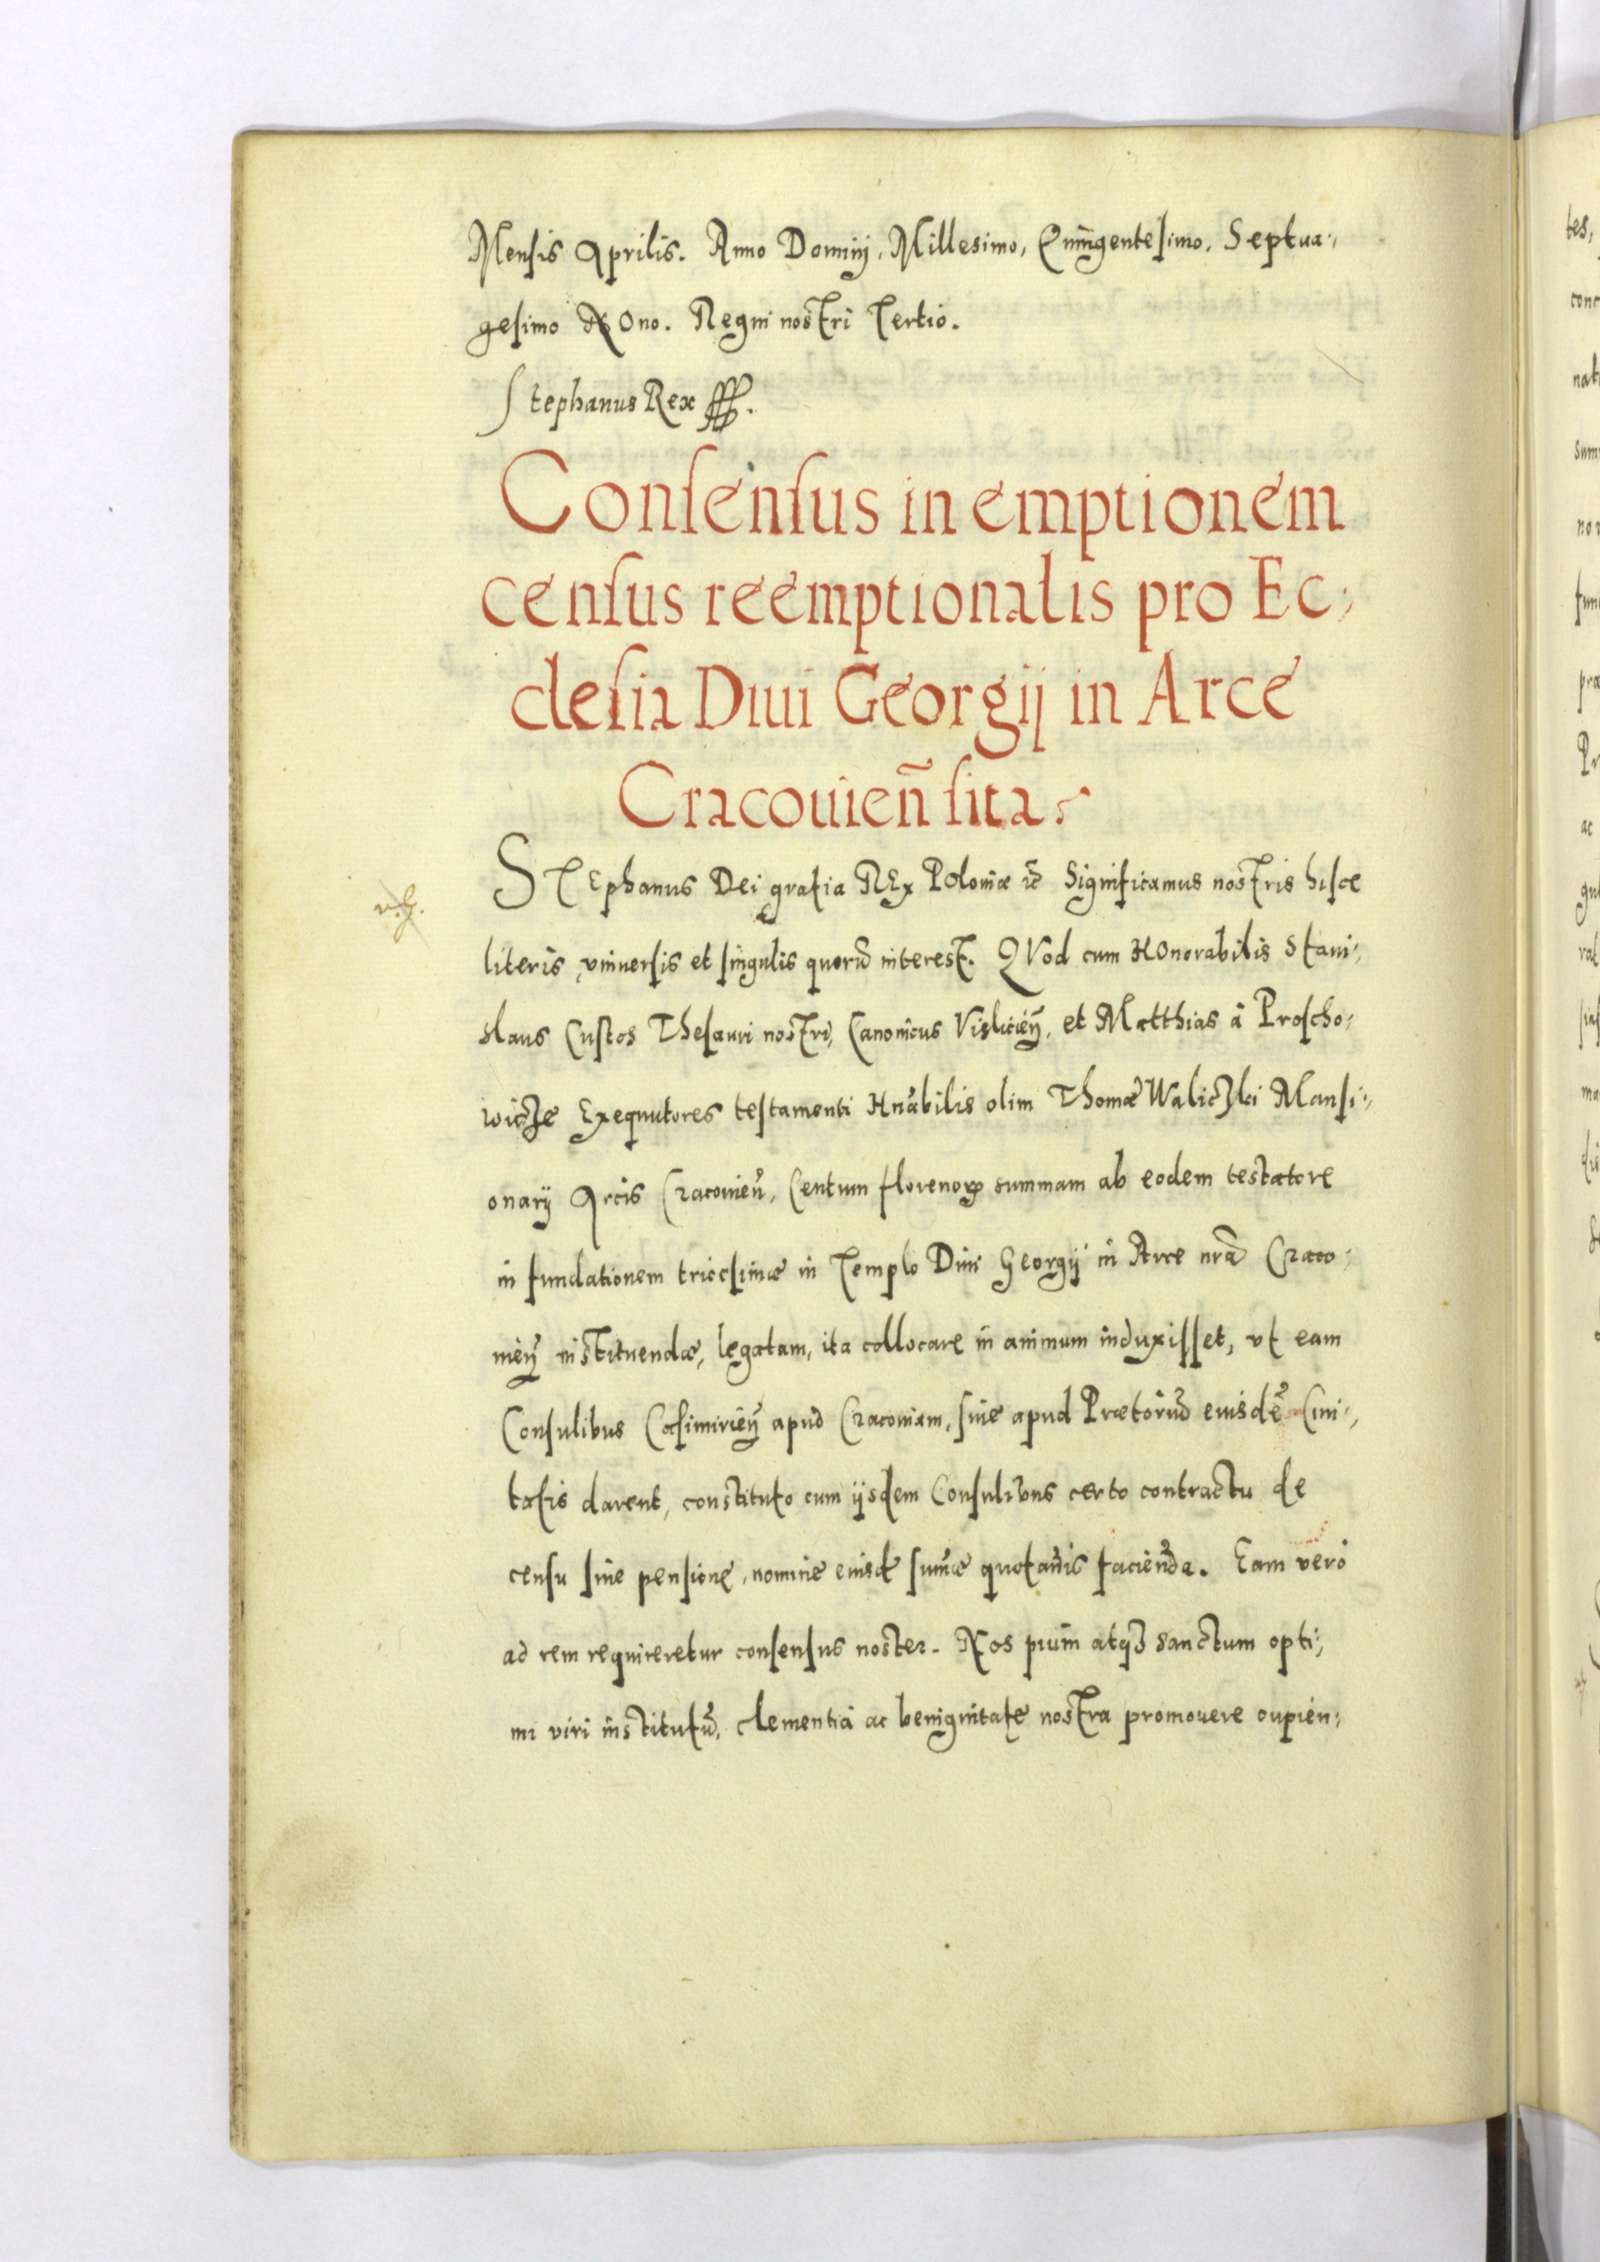 Mensis Aprilis. Anno Dominij, Millesimo, Quingentesimo, Septua-
gesimo NOno. Regni nostri Tertio.
Stephanus Rex
Consensus in emptionem
census reemptionalis pro Ec-
clesia Diui Georgij in Arce
Cracouien̄ sita.
STEphanus Dei gratia REx Poloniæ ꝛc̄ Significamus nostris hisce
literis, vniuersis et singulis quorū interest. QVod cum HOnorabilis Stani-
slaus Custos Thesauri nostri, Canonicus Visliciēn, et Matthias à Proscho-
wicze Exequutores testamenti Hnrābilis olim Thomæ Waliczki Mansi-
onarij Arcis Cracouien̄, Centum florenoꝝ summam ab eodem testatore
in fundationem tricesimæ in Templo Diui Georgij in Arce nrā Craco-
uieñ instituendæ, legatam, ita collocare in animum induxisset, vt eam
Consulibus Casimirieñ apud Cracouiam, siue apud Prætoriū eiusdē Ciui-
tatis darent, constituto cum ijsdem Consulibus certo contractu de
censu siue pensione, nomine eiusdē sum̄æ quotan̄is facien̄da. Eam vero
ad rem requireretur consensus noster. Nos pium atqꝫ sanctum opti-
mi viri institutū, clementia ac benignitate nostra promouere cupien-
tes,